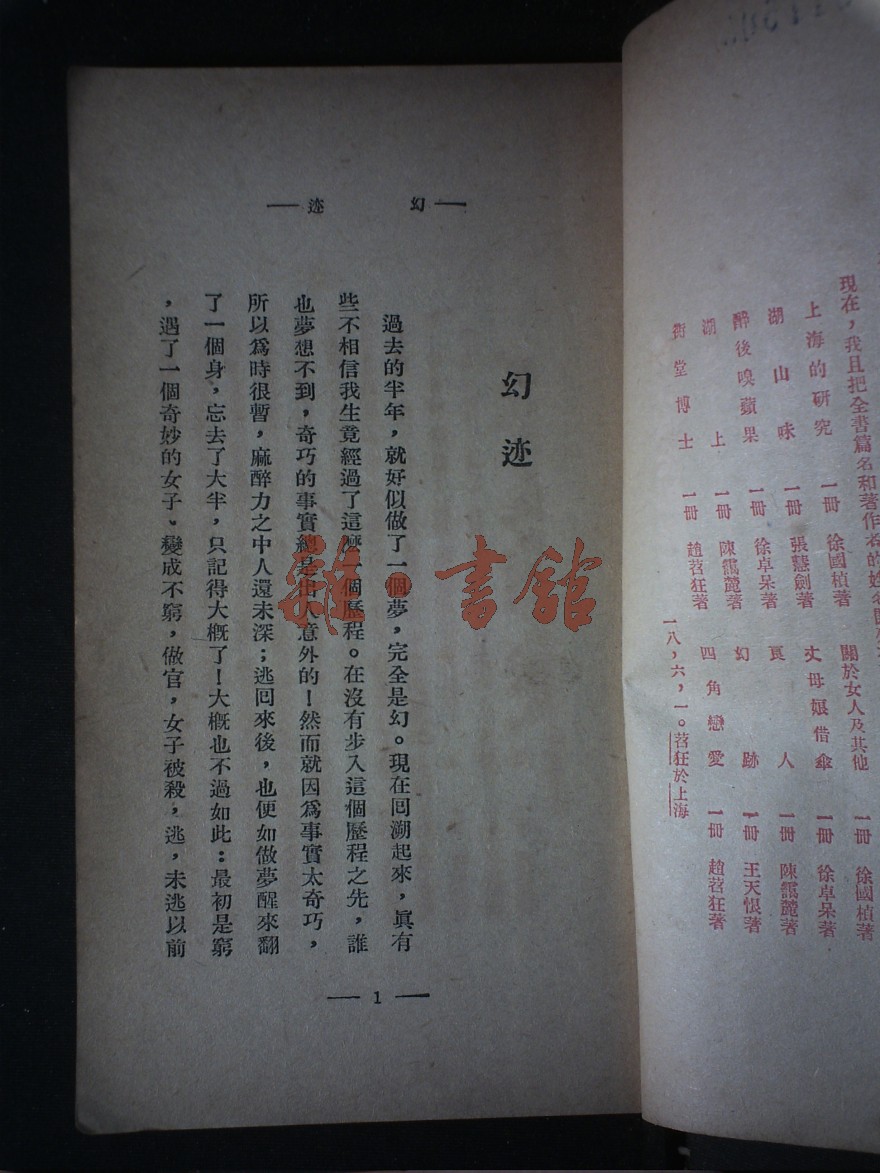 現在，我且把全書篇名和著作者的姓名開於
上海的研究　一冊　徐國楨著
湖山味　一冊　張慧劍著
醉後嗅蘋果　一冊　徐卓呆著
湖上　一冊　陳靄麓著
衖堂博士　一冊　趙苕狂著
關於女人及其他　一冊　徐國楨著
丈母娘借傘　一冊　徐卓呆著
良人　一冊　陳靄麓著
幻跡　一冊　王天恨著
四角戀愛　一冊　趙苕狂著
一八，六，一。苕狂於上海
幻迹
幻迹
過去的半年，就好似做了一個夢，完全是幻。現在囘溯起來，眞有
些不相信我生竟經過了這麼一個歷程。在沒有步入這個歷程之先，誰
也夢想不到，奇巧的事實總是出人意外的！然而就因爲事實太奇巧，
所以爲時很暫，麻醉力之中人還未深；逃囘來後，也便如做夢醒來翻
了一個身，忘去了大半，只記得大概了！大概也不過如此：最初是窮
，遇了一個奇妙的女子。變成不窮，做官，女子被殺，逃，未逃以前
1
雜·書館